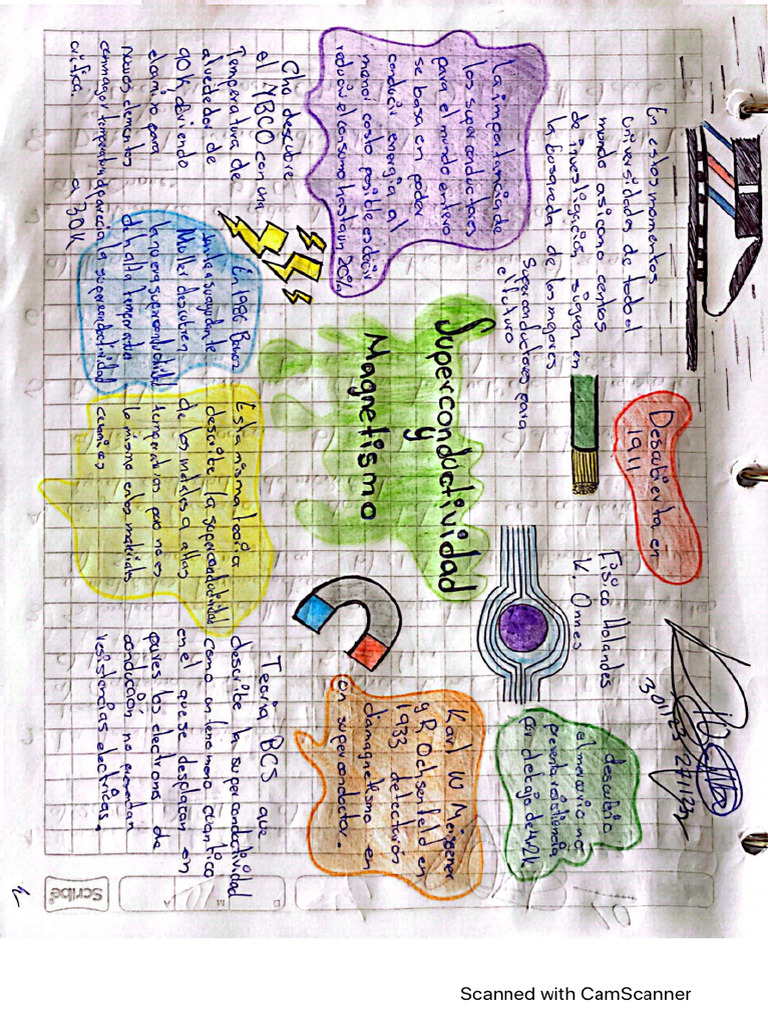 Superconductividad
y
Magnetismo
Descubierta en
1911
Físico Holandes
K. Onnes
descubrio
el mercurio no
presenta resistencia
por debajo de 4.2k
Karl W Meissner
y R. Ochsenfeld en
1933 detectaron
diamagnetismo en
un superconductor.
Teoría BCS que
describe la superconductividad
como un fenomeno cuantico
en el que se desplazan en
pares los electrons de
conducion no presentan
resistencias electricas.
Esta misma teoria
describe la superconductividad
de los metales a altas
temperaturas pero no es
lo mismo en los materiales
ceramicos
En 1986 Benoz
Muller descubren
la nueva superconductividad
de halta temperatura
a 30K
Chu descubre
el YBCO con una
Temperatura de
alrededor de
90 k, abriendo
el camino para
nuevos elementos
con mayor temperatura
critica.
La importancia de
los superconductores
para el mundo entero
se basa en poder
conducir energia al
menor costo posible es decir
reducir el consumo hasta un 20%
En estos momentos
universidades de todo el
mundo asi como centros
de investigación siguen en
la busqueda de los mejores
Superconductores para
el futuro
30/11/23
Scribe
D M A
2
Scanned with CamScanner